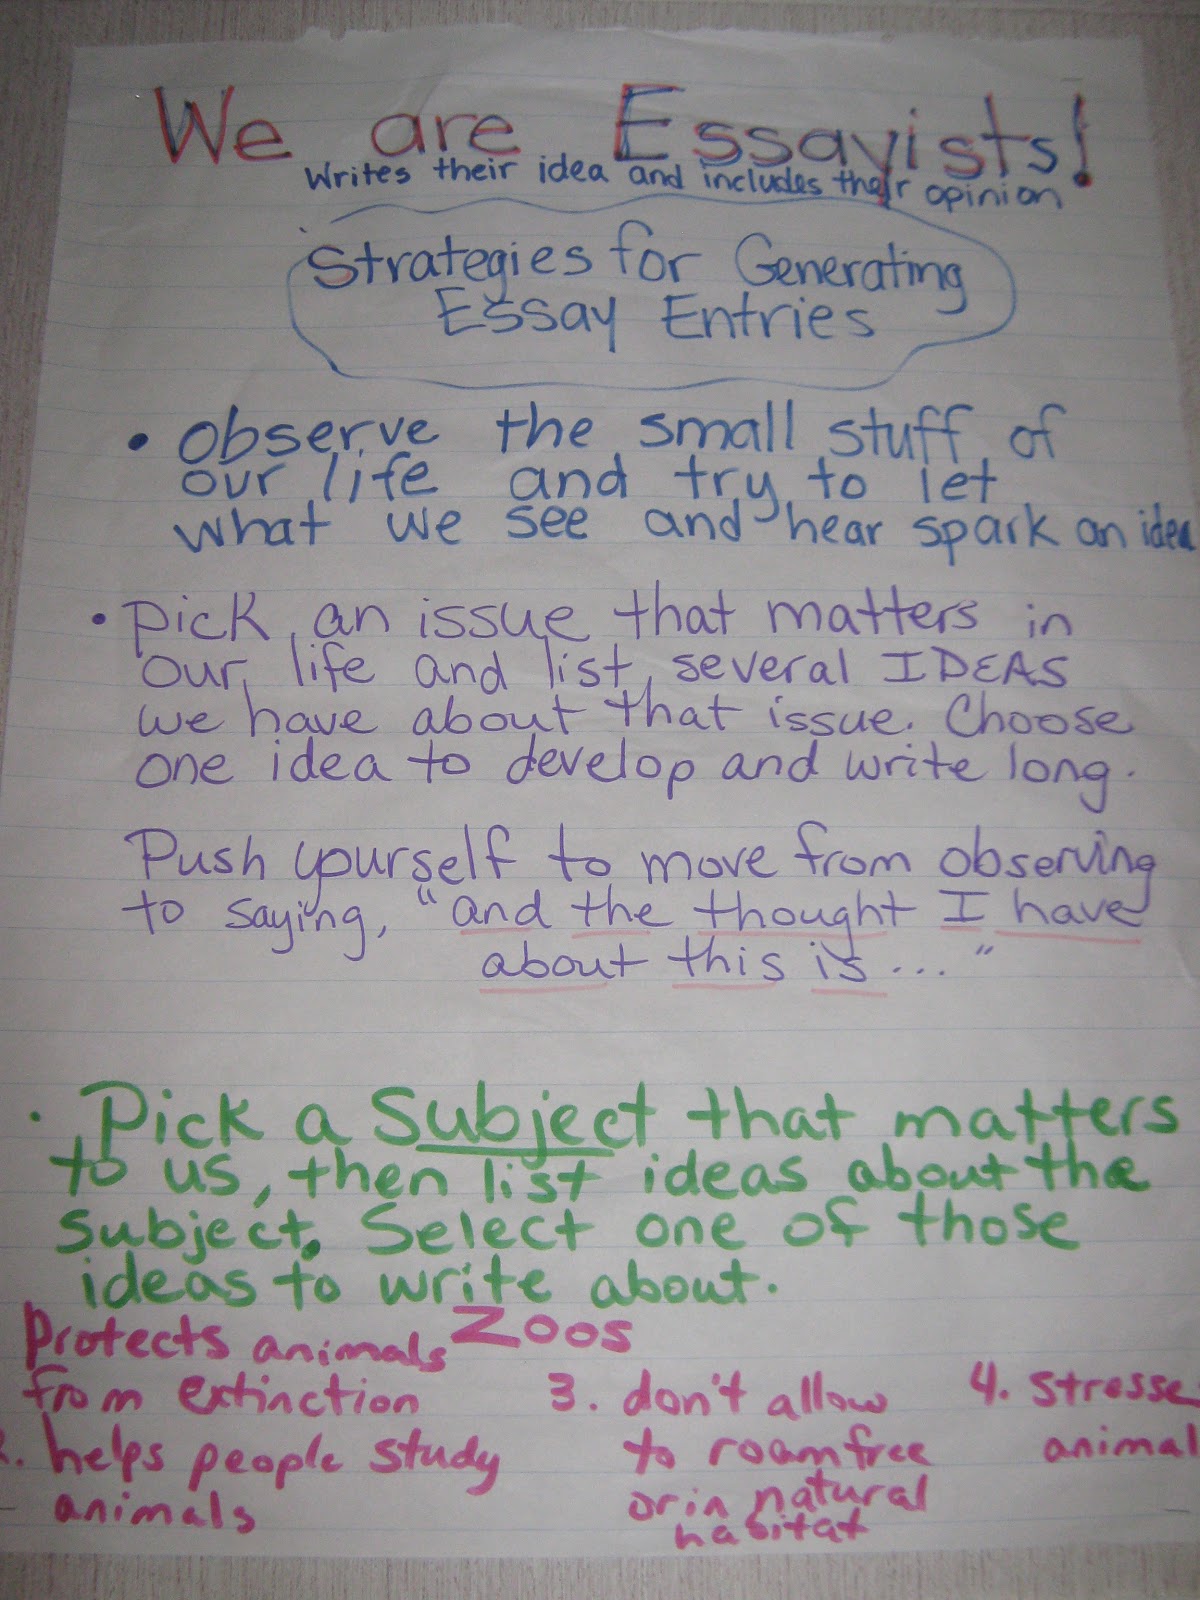 We are Essayists!
Writes their idea and includes their opinion
Strategies for Generating
Essay Entries
• Observe the small stuff of
our life and try to let
what we see and hear spark an idea
• Pick an issue that matters in
our life and list several IDEAS
we have about that issue. Choose
one idea to develop and write long.
Push yourself to move from observing
to saying, "and the thought I have
about this is..."
· Pick a Subject that matters
to us, then list ideas about the
subject. Select one of those
ideas to write about.
Zoos
Protects animals
from extinction
2. helps people study
animals
3. don't allow
to roam free
or in natural
habitat
4. stresse
animal